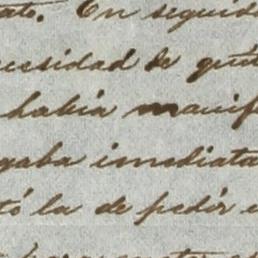 ato. En seguid
cesidad de
habia manif
gaba imediata
tó la de pedir